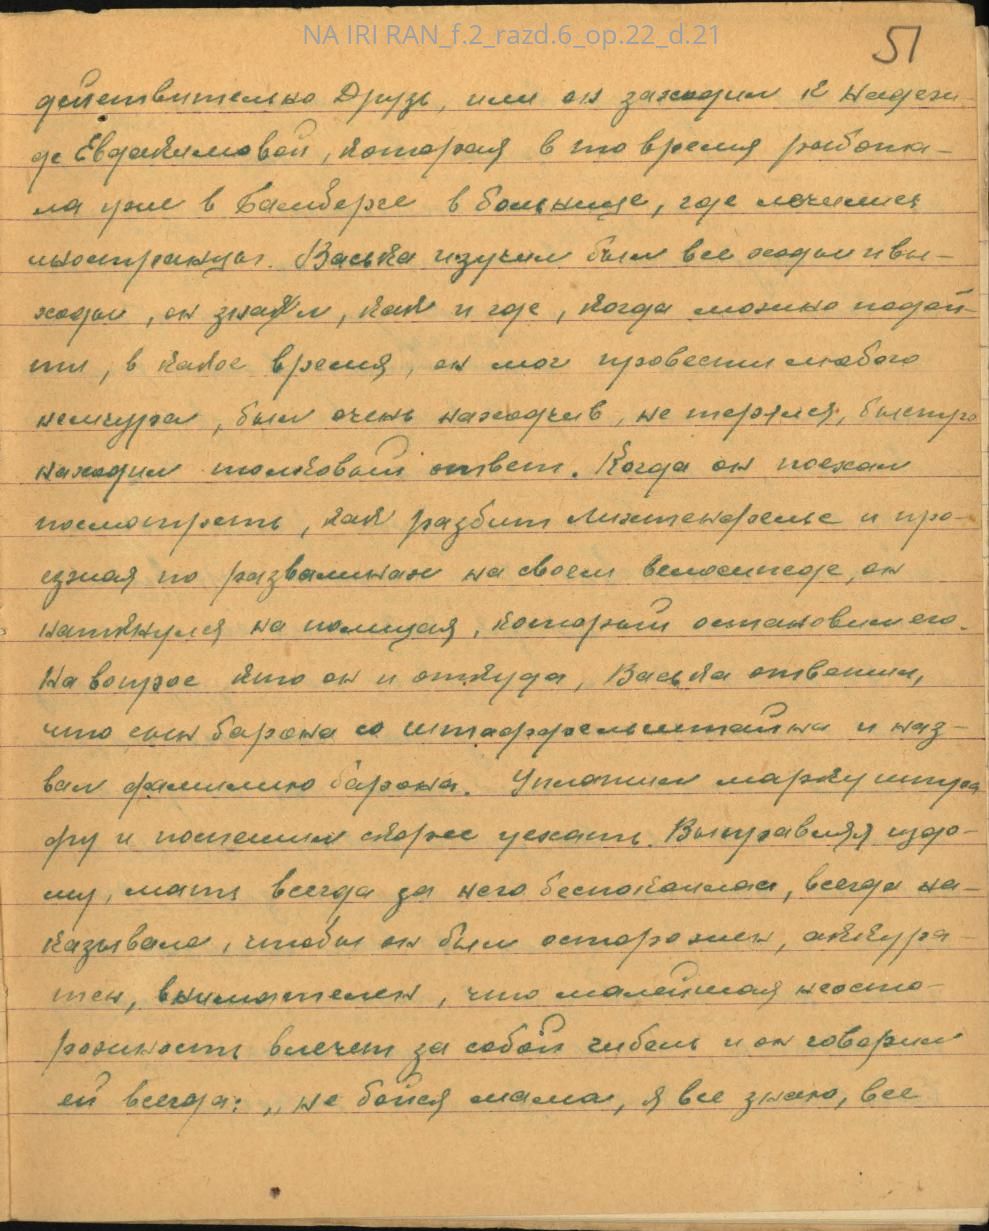 NA IRI RAN_f.2_razd.6_op.22_d.21
51
действительно друзь, или он заходил к Надеж
де Евдакимовой, которая в то время работа-
ла уже в Бамберге в больнице, где лечились
иностранцы. Васька изучил был все ходы и вы-
ходы, он знал, как и где, когда можно подой-
ти, в какое время, он мог провести любого
немчура, был очень находчив, не терялся, быстро
находил толковый ответ. Когда он поехал
посмотреть, как разбит Лихтенфельс и про-
езжая по развалинах на своем велосипеде, он
наткнулся на полицая, который остановил его.
На вопрос кто он и откуда, Васька ответил,
что сын барона со Штаффельштайна и наз-
вал фамилию барона. Уплатил марку штра
фу и поспешил скорее уехать. Выправляя издо-
му, мать всегда за него беспокоилась, всегда на-
казывала, чтобы он был осторожен, аккура-
тен, внимателен, что малейшая неосто-
рожность влечет за собой гибель и он говорил
ей всегда: „не бойся мама, я все знаю, все